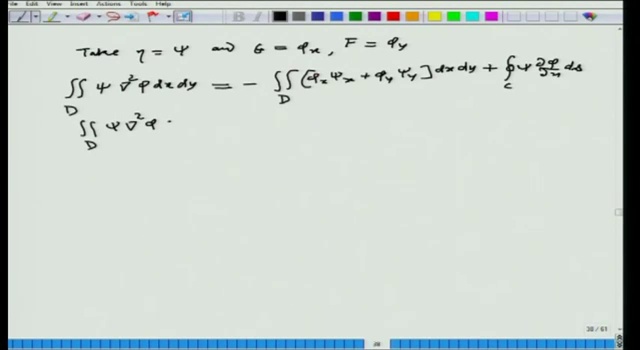 File Edit View Insert Actions Tools Help
Take η = Ψ and G = φx, F = φy
∬D Ψ ∇²φ dx dy = - ∬D [φxΨx + φyΨy] dx dy + ∮c Ψ ∂φ/∂n ds
∬D Ψ ∇²φ ·
38 / 61
38